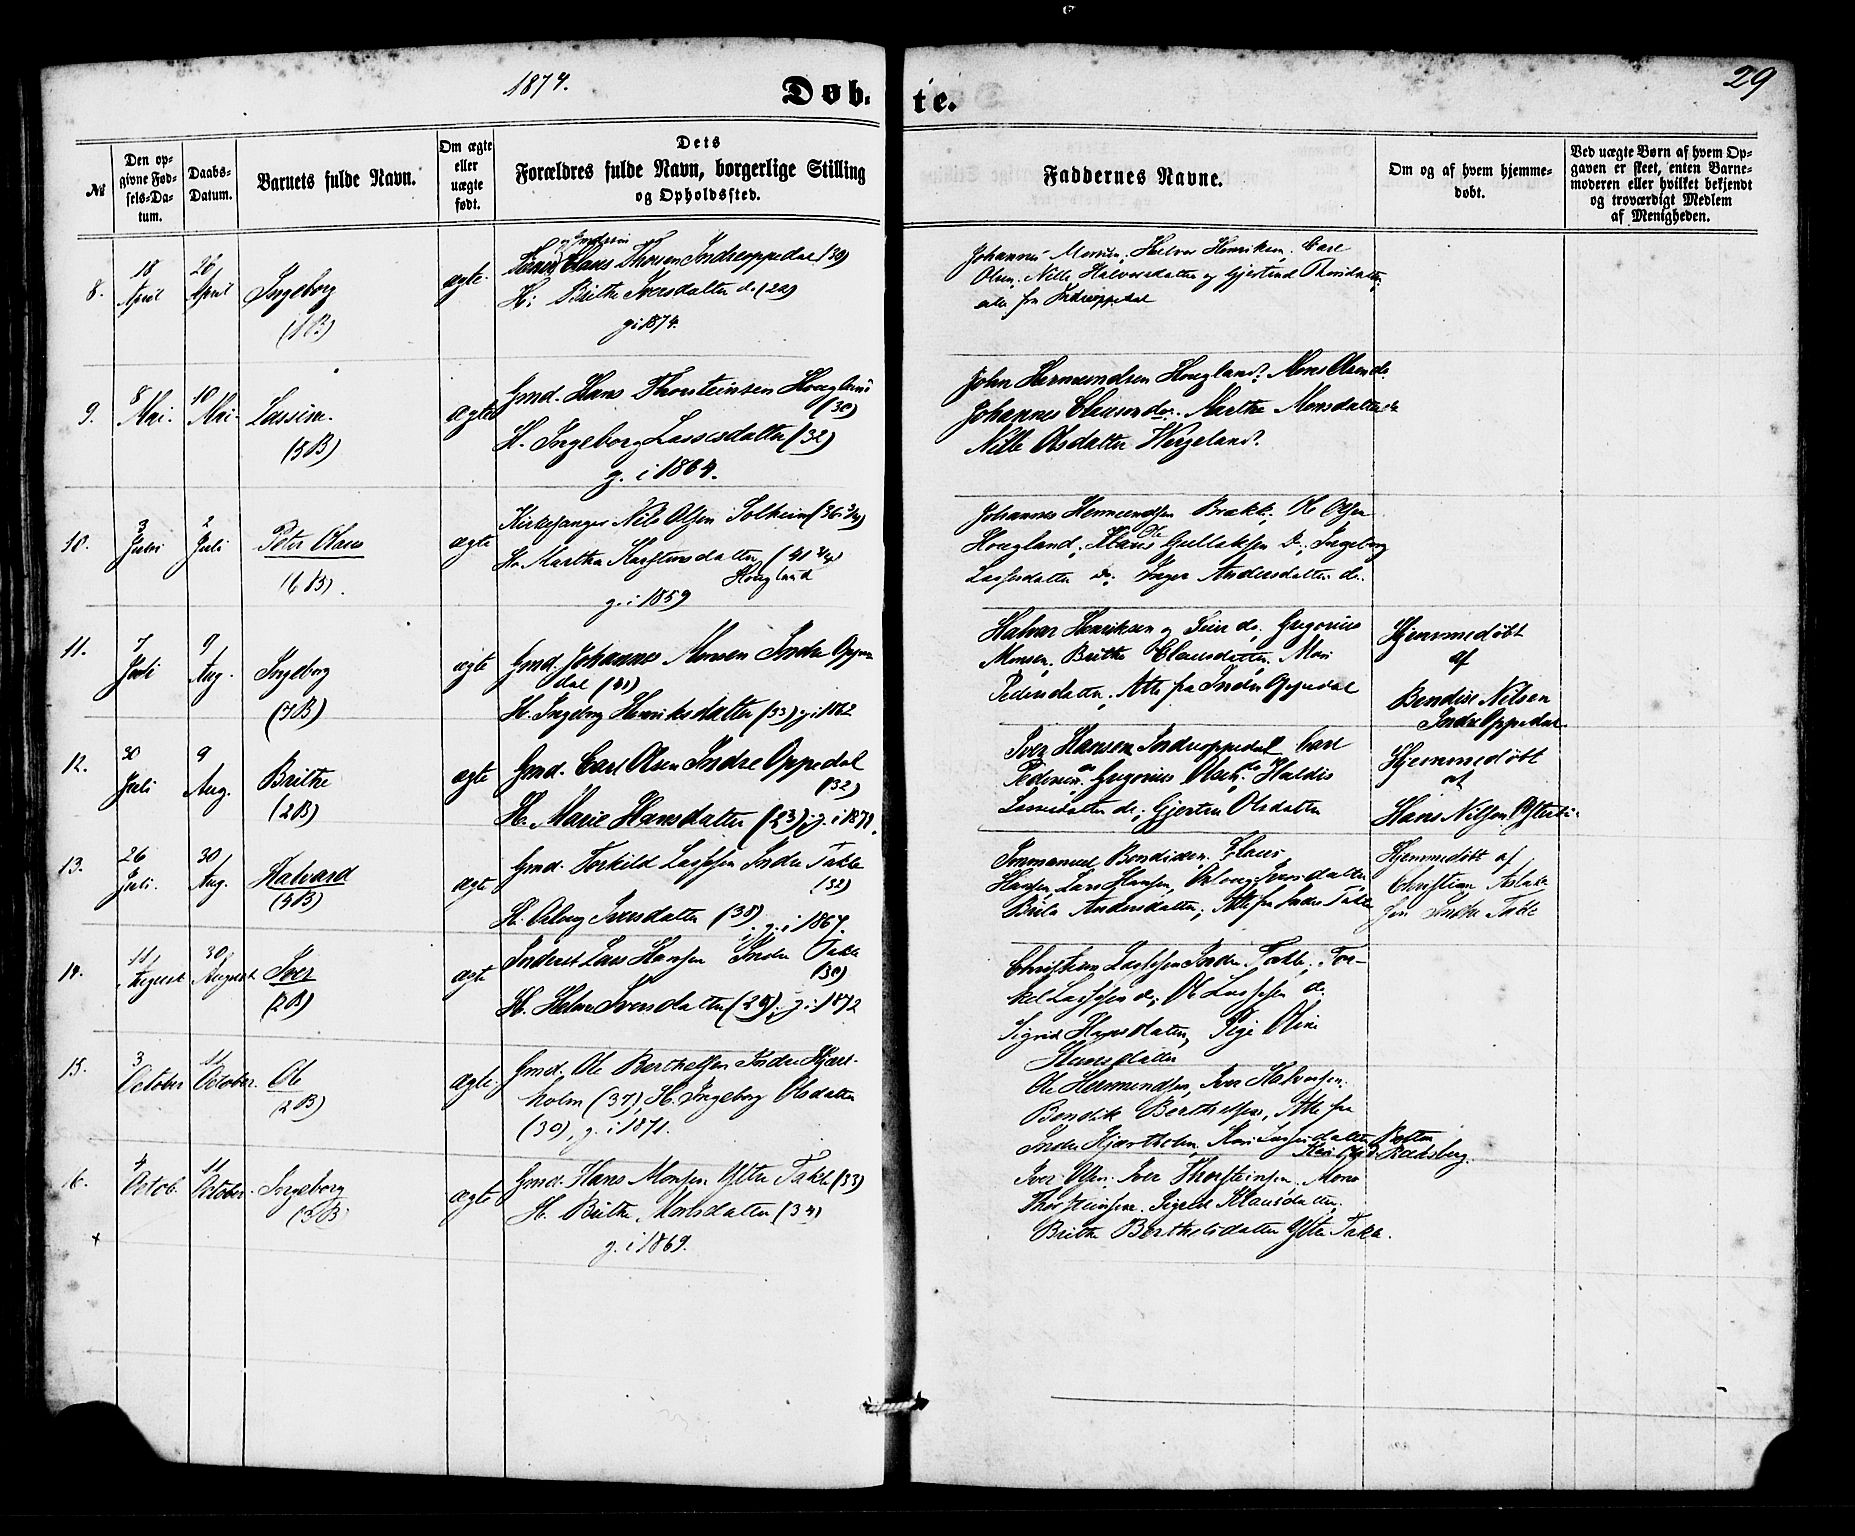 1874.
Døb-
te.
29
№
Den op-
givne Fød-
sels-Da-
tum.
Daabs-
Datum.
Barnets fulde Navn.
Om ægte
eller
uægte
født.
Dets
Forældres fulde Navn, borgerlige Stilling
og Opholdssted.
Faddernes Navne.
Om og af hvem hjemme-
døbt.
Ved uægte Børn af hvem Op-
gaven er skeet, enten Barne-
moderen eller hvilket bekjendt
og troværdigt Medlem
af Menigheden.
8.
18
April
26
April
Ingeborg
(1 B)
ægte
Claus Thorsen Indreoppedal (30)
H: Brithe Iversdatter do (20)
g i 1874.
Johannes Monsen, Halvor Henriksen, Carl
Olsen, Nille Halvorsdatter og Gjertrud
alle fra Indreoppedal
9.
8
Mai.
10
Mai.
Lassine.
(5 B)
ægte
Gmd. Hans Thorsteinsen Hougland
(30)
H. Ingeborg Lassesdatter (32)
g. i 1864.
John Hermundsen Hougland, Mons Olsen do
Johannes Clausen do. Marthe Monsdatter do
Nille Olsdatter Wergeland.
10.
3
Juni
2
Juli
Peter Olaus
(6 B).
ægte
Kirkesanger Nils Olsen Solheim (36 3/4)
H. Martha Karstensdatter (41 3/4)
Hougland
g. i 1859
Johannes Hermundsen Brække, Ole Olsen
Hougland; Ole Gullaksen do; Ingeborg
Lassesdatter do; Inger Andersdatter do.
11.
7
Juli
9
Aug.
Ingeborg
(7 B)
ægte
Gmd. Johannes Monsen Indre Oppe-
dal (41)
H. Ingeborg Henriksdatter (33) g. i 1862
Halvor Henriksen og do. Gregorius
Monsen, Brithe Clausdatter, Mari
Pedersdatter, Alle fra Indre Oppedal
Hjemmedøbt
af
Bendix Nilsen
Indre Oppedal
12.
30
Juli
9
Aug.
Brithe
(2 B)
ægte
Gmd. Carl Olsen Indre Oppedal
(32)
H. Marie Hansdatter (23) g. i 1871.
Iver Hansen Indreoppedal Carl
Pedersen do, Gregorius Olsen do, Haldis
Larsdatter do; Gjertru Olsdatter
Hjemmedøbt
af
Hans Nilsen
13.
26
Juli.
30
Aug.
Halvard
(5 B)
ægte
Gmd. Torkild Lassesen Indre Takle
(32)
H. Iversdatter (38) g. i 1867.
Immanuel Bendixsen, Klaus
Hansen, Lars Hansen, Iversdatter
Andersdatter, Alle fra Indre Takle
Hjemmedøbt af
Christian
sen Indre Takle
14.
11
August
30
August
Iver
(2 B)
ægte
Inderst Lars Hansen i Indre Takle
(30)
H. Helene Iversdatter (29) g. i 1872
Christian Lassesen Indre Takle, Tor-
kel Lassesen do; Ole Lassesen do
Sigrid Hansdatter, Pige Oline
Hansdatter
15.
3
October
11
October.
Ole
(2 B)
ægte.
Gmd. Ole Berthelsen Indre Hjart-
holm (37), H. Ingeborg Olsdatter
(30), g. i 1871.
Ole Hermundsen, Iver Halvorsen,
Bendik Berthelsen, Alle fra
Indre Hjartholm, Kari Lassesdatter Botten
16.
4
Octob.
11
October.
Ingeborg
(3 B)
ægte
Gmd. Hans Monsen Ytre Takle (33)
H. Brithe Monsdatter (34)
g. i 1869.
Iver Olsen, Iver Thorsteinsen, Mons
Thorsteinsen, Sigrid Klausdatter,
Brithe Berthelsdatter Ytre Takle.
+